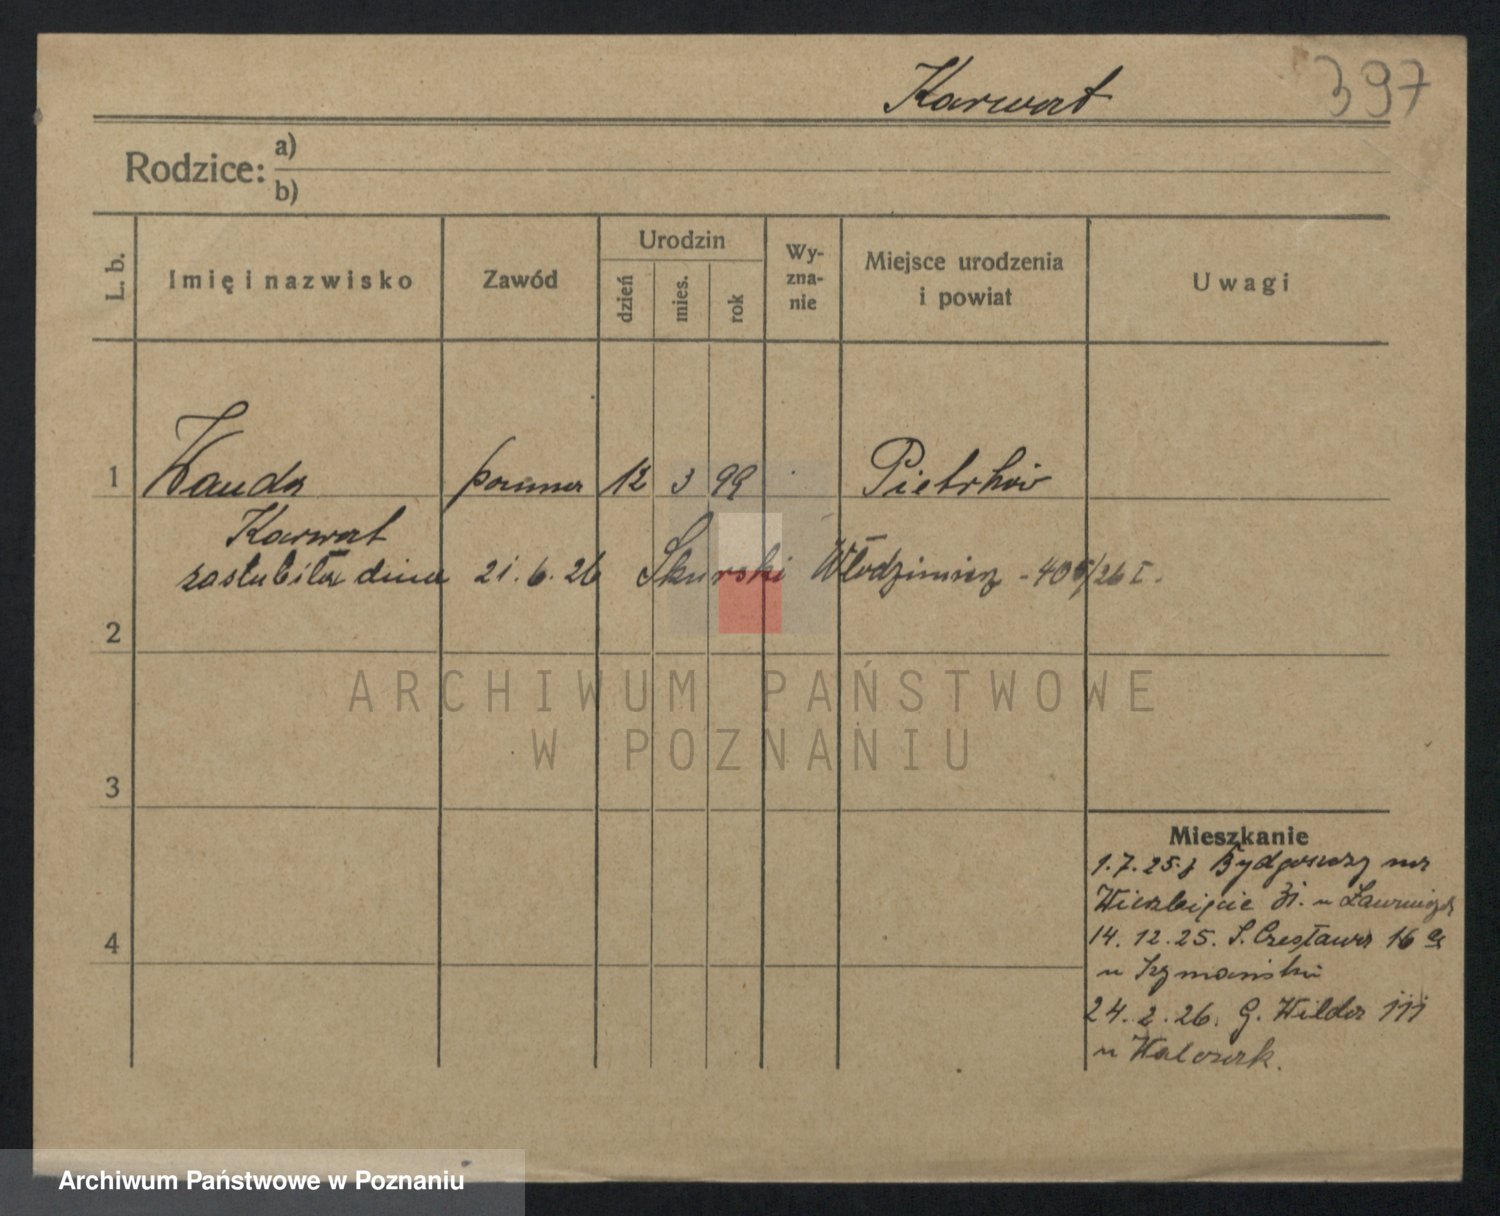 Karwat 397
Rodzice: a)
b)
L. b. Imię i nazwisko Zawód Urodzin dzień mies. rok Wy-zna-nie Miejsce urodzenia i powiat Uwagi
1 Wanda panna 12 3 99 Pietrków
Karwat
zaślubiła dnia 21.6.26 Skurski Włodzimierz - 409/26 I.
2
ARCHIWUM PAŃSTWOWE
W POZNANIU
3
Mieszkanie
1.7.25. z Bydgoszczy na
Wierzbięcie 31. u
4
14.12.25. S. Czesława 16
u Szymański
24.2.26. G. Wilda 111
u Walczak.
Archiwum Państwowe w Poznaniu